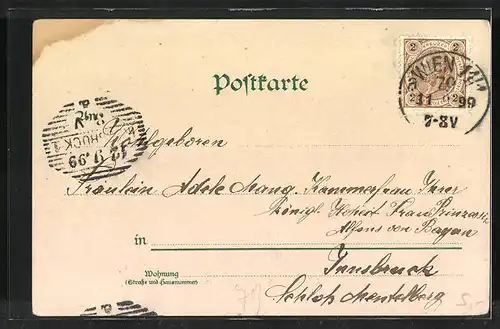 Postkarte
2 KREUZER 2
2 2
WIEN
70
11 9 99
7-8V
INNSBRUCK 1
12.9.99
Wohlgeboren
Fräulein Adele Mang. Kammerfrau Ihrer
Königl. Hoheit Frau Prinzessin
Alfons von Bayern
in Innsbruck
Wohnung
(Straße und Hausnummer)
Schloß Mentelberg
5,-